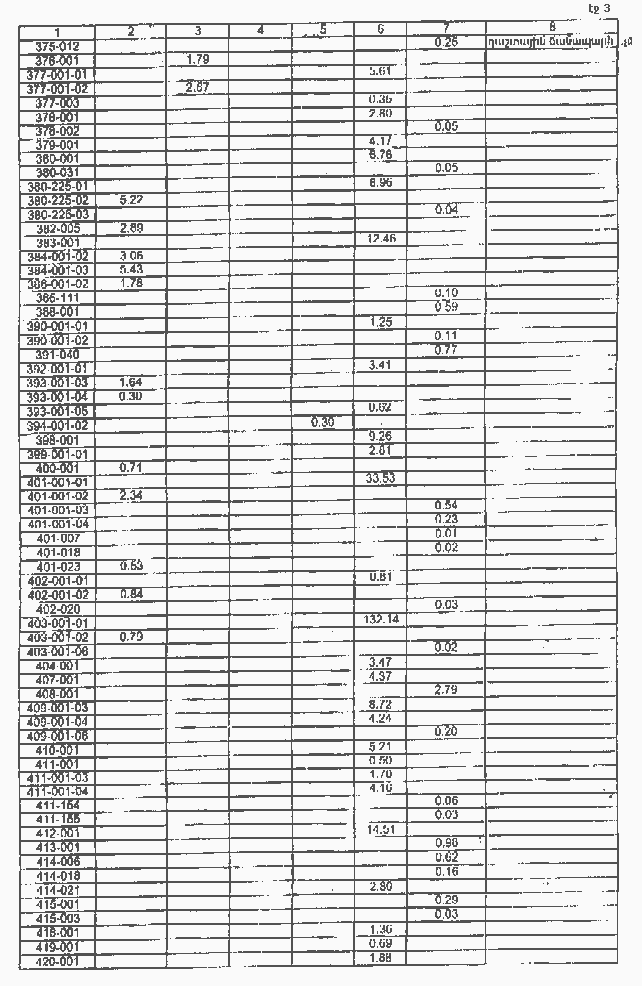 էջ 3
1 2 3 4 5 6 7 8
375-012 0.26 դաշտային ճանապարհ
376-001 1.79
377-001-01 5.61
377-001-02 2.67
377-003 0.35
378-001 2.80
378-002 0.05
379-001 4.17
380-001 6.76
380-031 0.05
380-225-01 8.96
380-225-02 5.22
380-225-03 0.04
382-005 2.89
383-001 12.46
384-001-02 3.06
384-001-03 5.43
386-001-02 1.78
386-111 0.10
388-001 0.59
390-001-01 1.25
390-001-02 0.11
391-040 0.77
392-001-01 3.41
393-001-03 1.64
393-001-04 0.30
393-001-05 0.62
394-001-02 0.30
398-001 9.26
399-001-01 2.81
400-001 0.71
401-001-01 33.53
401-001-02 2.34
401-001-03 0.54
401-001-04 0.23
401-007 0.01
401-018 0.02
401-023 0.53
402-001-01 0.81
402-001-02 0.84
402-020 0.03
403-001-01 132.14
403-001-02 0.79
403-001-06 0.02
404-001 3.47
407-001 4.37
408-001 2.79
409-001-03 8.72
409-001-04 4.24
409-001-06 0.20
410-001 5.21
411-001 0.50
411-001-03 1.70
411-001-04 4.16
411-154 0.06
411-155 0.03
412-001 14.51
413-001 0.98
414-006 0.62
414-018 0.16
414-021 2.80
415-001 0.29
415-003 0.03
418-001 1.36
419-001 0.69
420-001 1.88